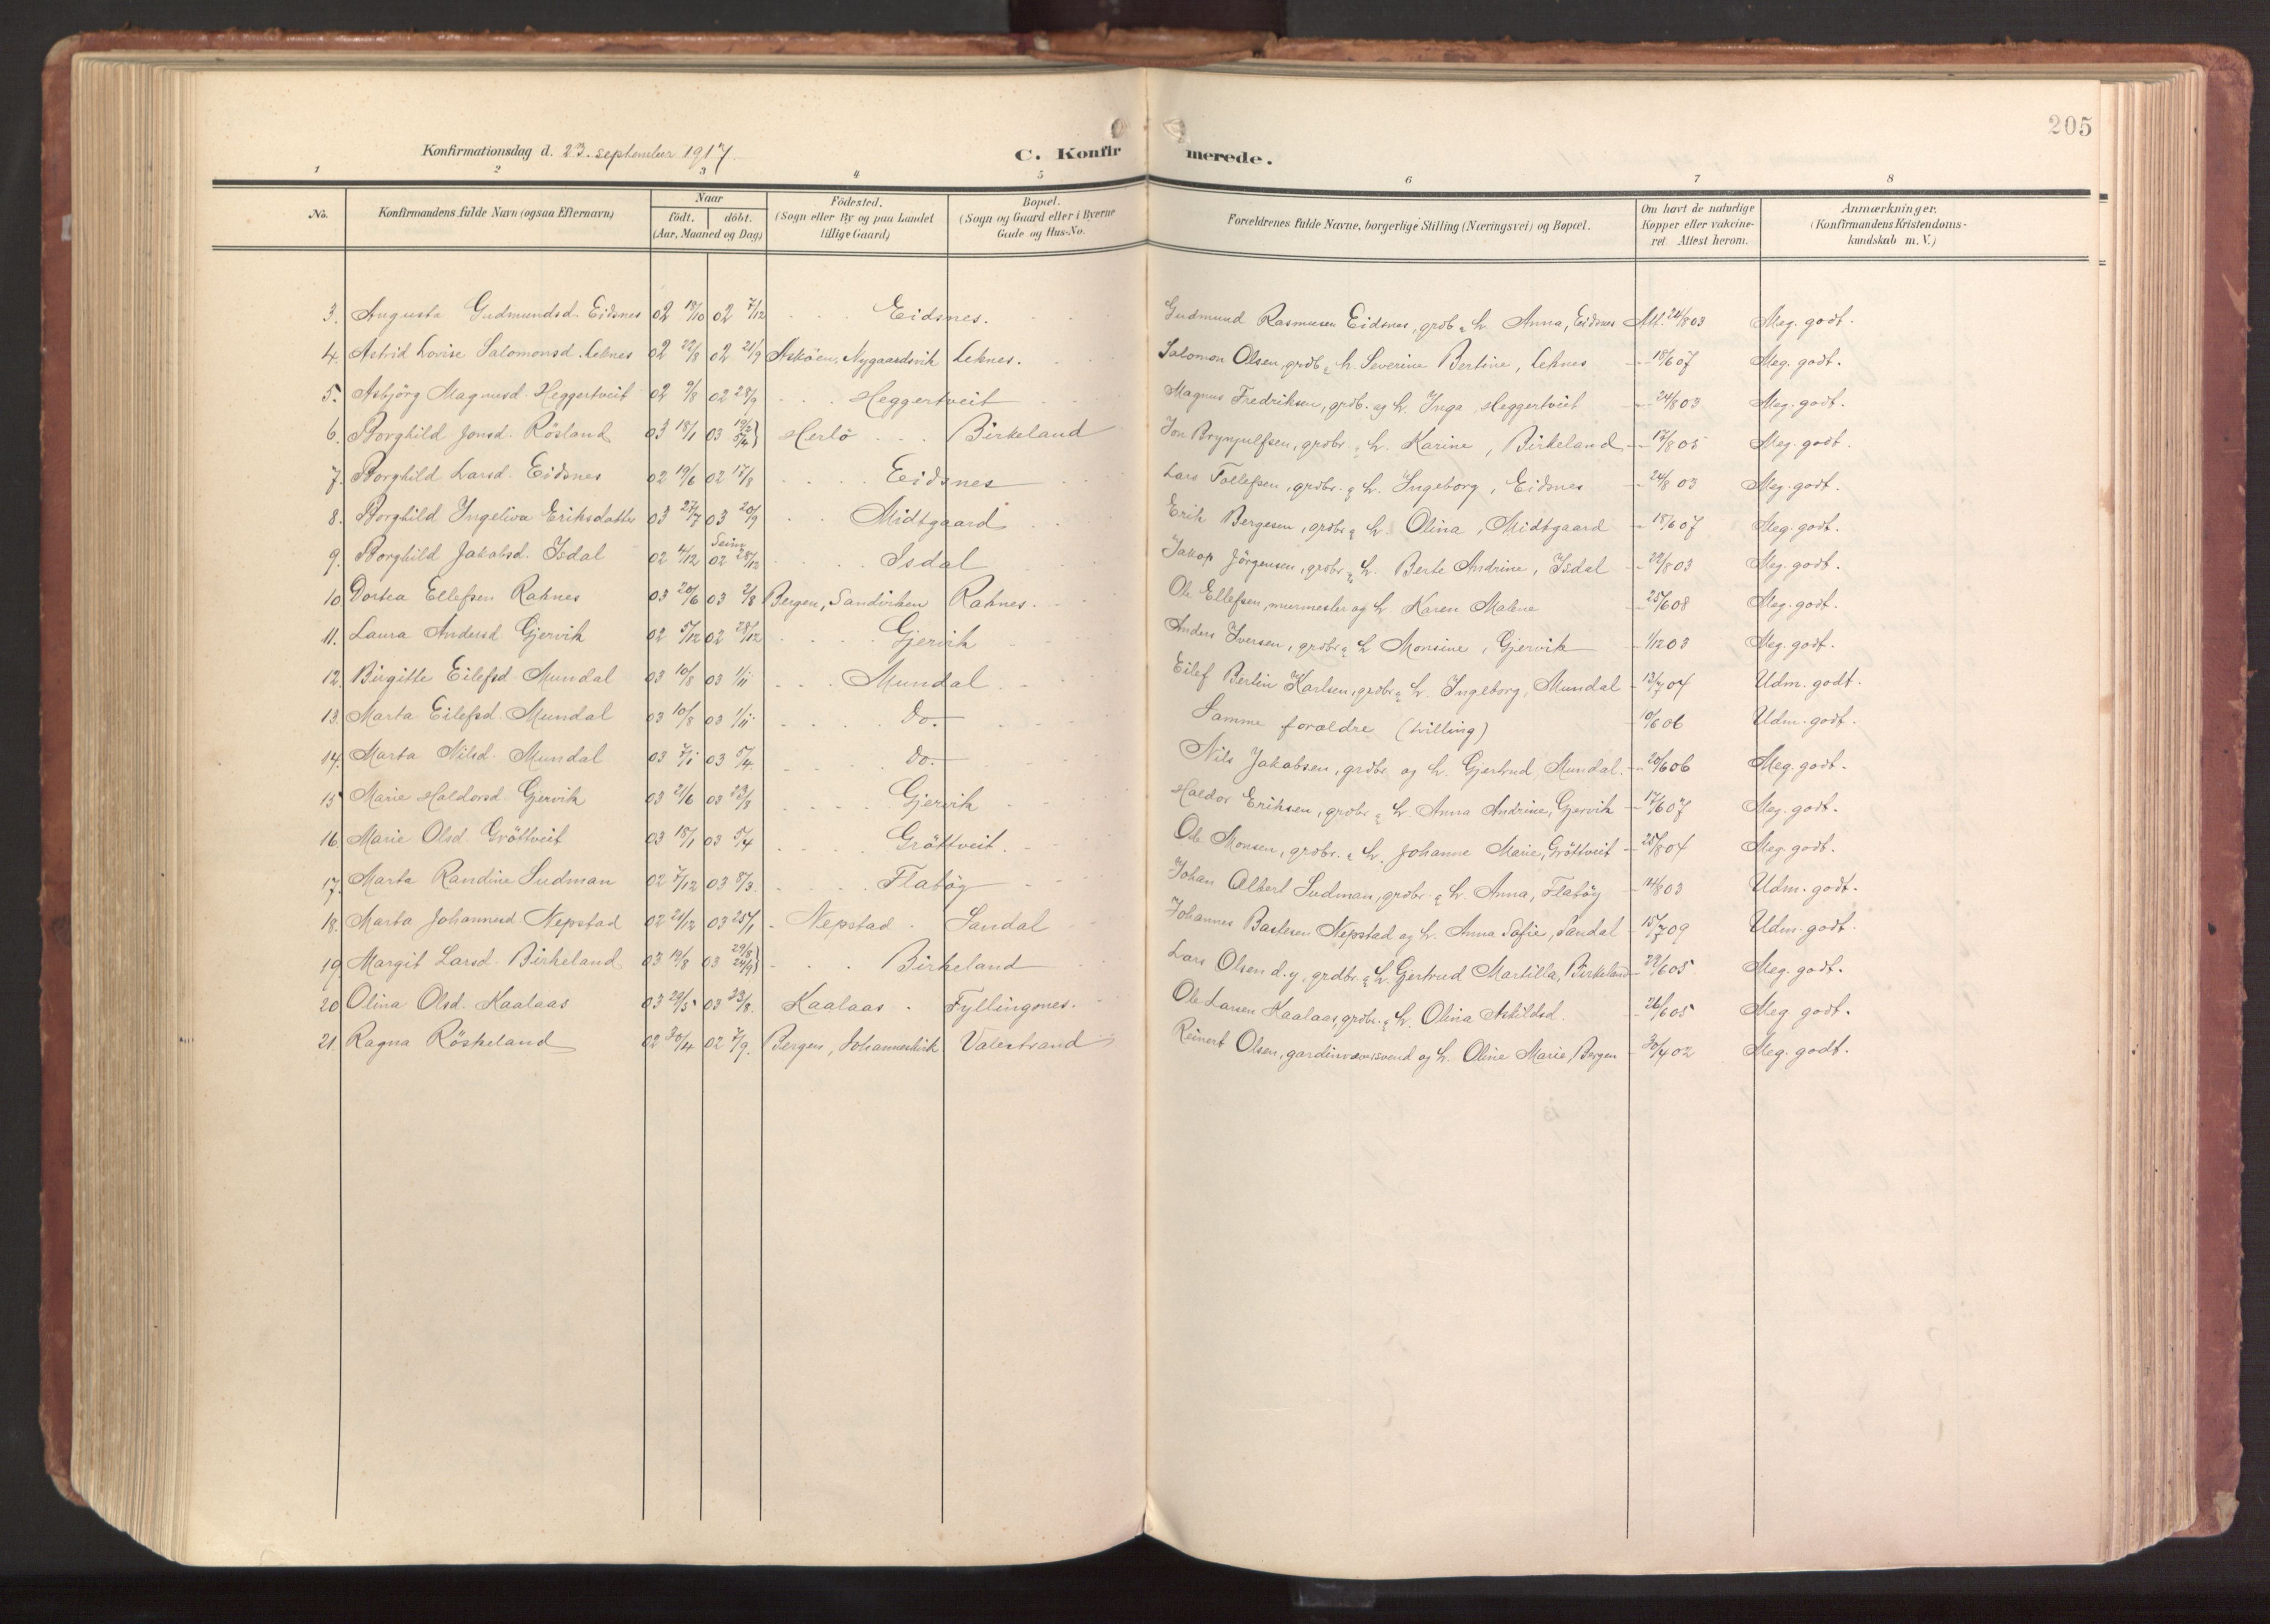 205
Konfirmationsdag d. 23. september 1917.
C. Konfirmerede.
1 2 3 4 5 6 7 8
No. Konfirmandens fulde Navn (ogsaa Efternavn) Naar født. døbt. (Aar, Maaned og Dag) Fødested. (Sogn eller By og paa Landet tillige Gaard) Bopæl. (Sogn og Gaard eller i Byerne Gade og Hus-No. Forældrenes fulde Navne, borgerlige Stilling (Næringsvei) og Bopæl. Om havt de naturlige Kopper eller vakcineret. Attest herom. Anmærkninger. (Konfirmandens Kristendomskundskab m. V.)
3. Augusta Gudmundsd. Eidsnes 02 18/10 02 7/12 Eidsnes. Gudmund Rasmusen Eidsnes, grdb. & h. Anna, Eidsnes Att. 24/8 03 Meg. godt.
4. Astrid Lovise Salomonsd. Leknes 02 22/8 02 21/9 Askøen, Nygaardsvik Leknes. Salomon Olsen, grdb. & h. Severine Bertine, Leknes - 18/6 07 Meg. godt.
5. Asbjørg Magnusd. Heggertveit 02 9/8 02 28/9 Heggertveit Magnus Fredriksen, grdb. og h. Inga, Heggertveit - 24/8 03 Meg. godt.
6. Borghild Jonsd. Røsland 03 18/1 03 19/2 5/4} Herlø Birkeland Jon Brynjulfsen, grdbr. & h. Karine, Birkeland - 17/8 05 Meg. godt.
7. Borghild Larsd. Eidsnes 02 19/6 02 17/8 Eidsnes Lars Tollefsen, grdbr. & h. Ingeborg, Eidsnes - 24/8 03 Meg. godt.
8. Borghild Ingeliva Eriksdatter 03 27/7 03 20/9 Midtgaard Erik Bergesen, grdbr. & h. Olina, Midtgaard - 18/6 07 Meg. godt.
9. Borghild Jakobsd. Isdal 02 4/12 Seim 02 28/12 Isdal Jakop Jørgensen, grdbr. & h. Berte Andrine, Isdal - 22/8 03 Meg. godt.
10 Dortea Ellefsen Raknes 03 20/6 03 2/8 Bergen, Sandviken Raknes. Ole Ellefsen, murmester og h. Karen Malene - 25/6 08 Meg. godt.
11. Laura Andersd. Gjervik 02 5/12 02 28/12 Gjervik Anders Iversen, grdbr. & h. Monsine, Gjervik - 1/12 03 Meg. godt.
12. Birgitte Eilefsd. Mundal 03 10/8 03 1/11 Mundal Eilef Bertin Karlsen, grdbr. & h. Ingeborg, Mundal - 13/7 04 Udm. godt.
13. Marta Eilefsd. Mundal 03 10/8 03 1/11 do. Samme forældre (tvilling) - 10/6 06 Udm. godt.
14. Marta Nilsd. Mundal 03 7/1 03 5/4. do. Nils Jakobsen, grdbr. og h. Gjertrud, Mundal. - 20/6 06 Meg. godt.
15 Marie Haldorsd. Gjervik 03 21/6 03 23/8 Gjervik Haldor Eriksen, grdbr. & h. Anna Andrine, Gjervik - 17/6 07 Meg. godt.
16. Marie Olsd. Grøttveit 03 18/1 03 5/4 Grøttveit. Ole Monsen, grdbr. & h. Johanne Marie, Grøttveit - 25/8 04 Meg. godt.
17. Marta Randine Sudman 02 7/12 03 8/3. Flatøy Johan Albert Sudman, grdbr. & h. Anna, Flatøy - 14/8 03 Udm. godt.
18. Marta Johannesd. Nepstad 02 21/12 03 25/1 Nepstad Sandal Johannes Bastesen Nepstad og h. Anna Sofie, Sandal - 15/7 09 Udm. godt.
19 Margit Larsd. Birkeland 03 19/8 03 29/8 24/9} Birkeland Lars Olsen d.y., grdbr. & h. Gjertrud Martilla, Birkeland - 29/6 05 Meg. godt.
20 Olina Olsd. Kaalaas 03 29/5 03 23/8. Kaalaas Fyllingsnes. Ole Larsen Kaalaas, grdbr. & h. Olina Askildsd. - 26/6 05 Meg. godt.
21. Ragna Røskeland 02 30/4 02 7/9. Bergen, Johanneskirk Valestrand Reinert Olsen, gardinvæversvend og h. Oline Marie, Bergen - 30/4 02 Meg. godt.